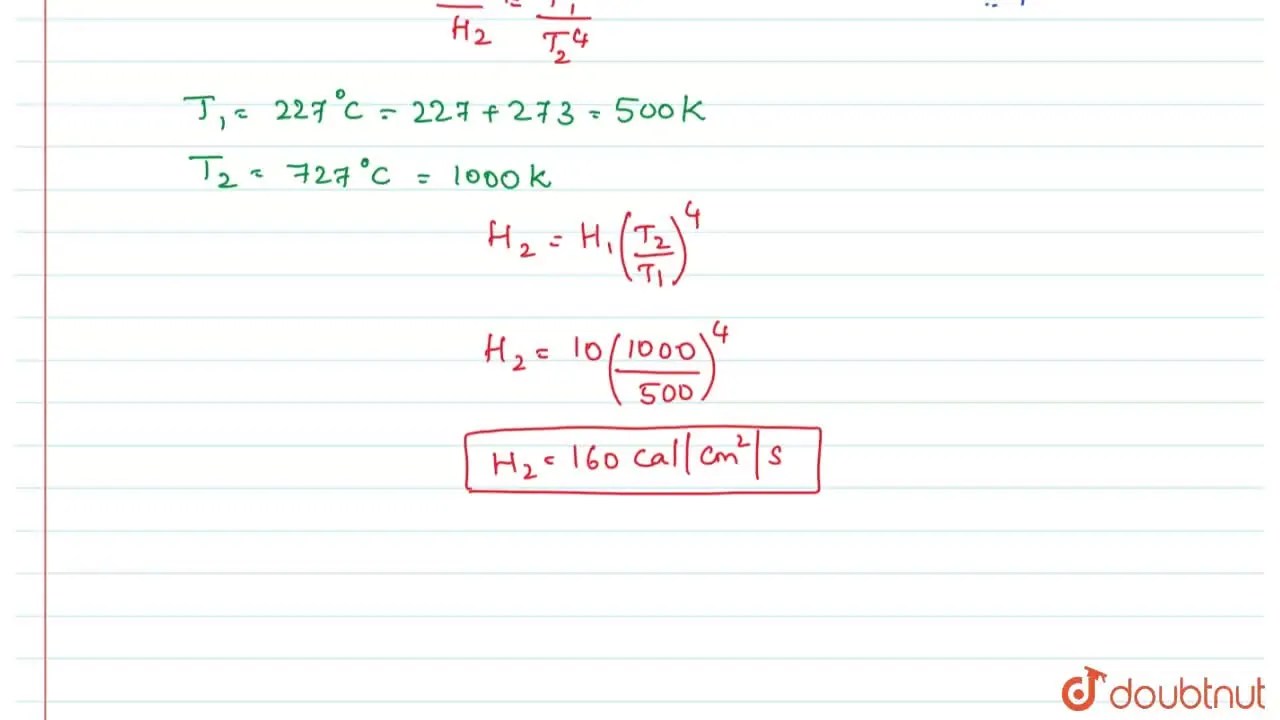 H₂ = T₂⁴
T₁ = 227°C = 227 + 273 = 500K
T₂ = 727°C = 1000K
H₂ = H₁(T₂/T₁)⁴
H₂ = 10(1000/500)⁴
H₂ = 160 Cal/cm²/s
doubtnut